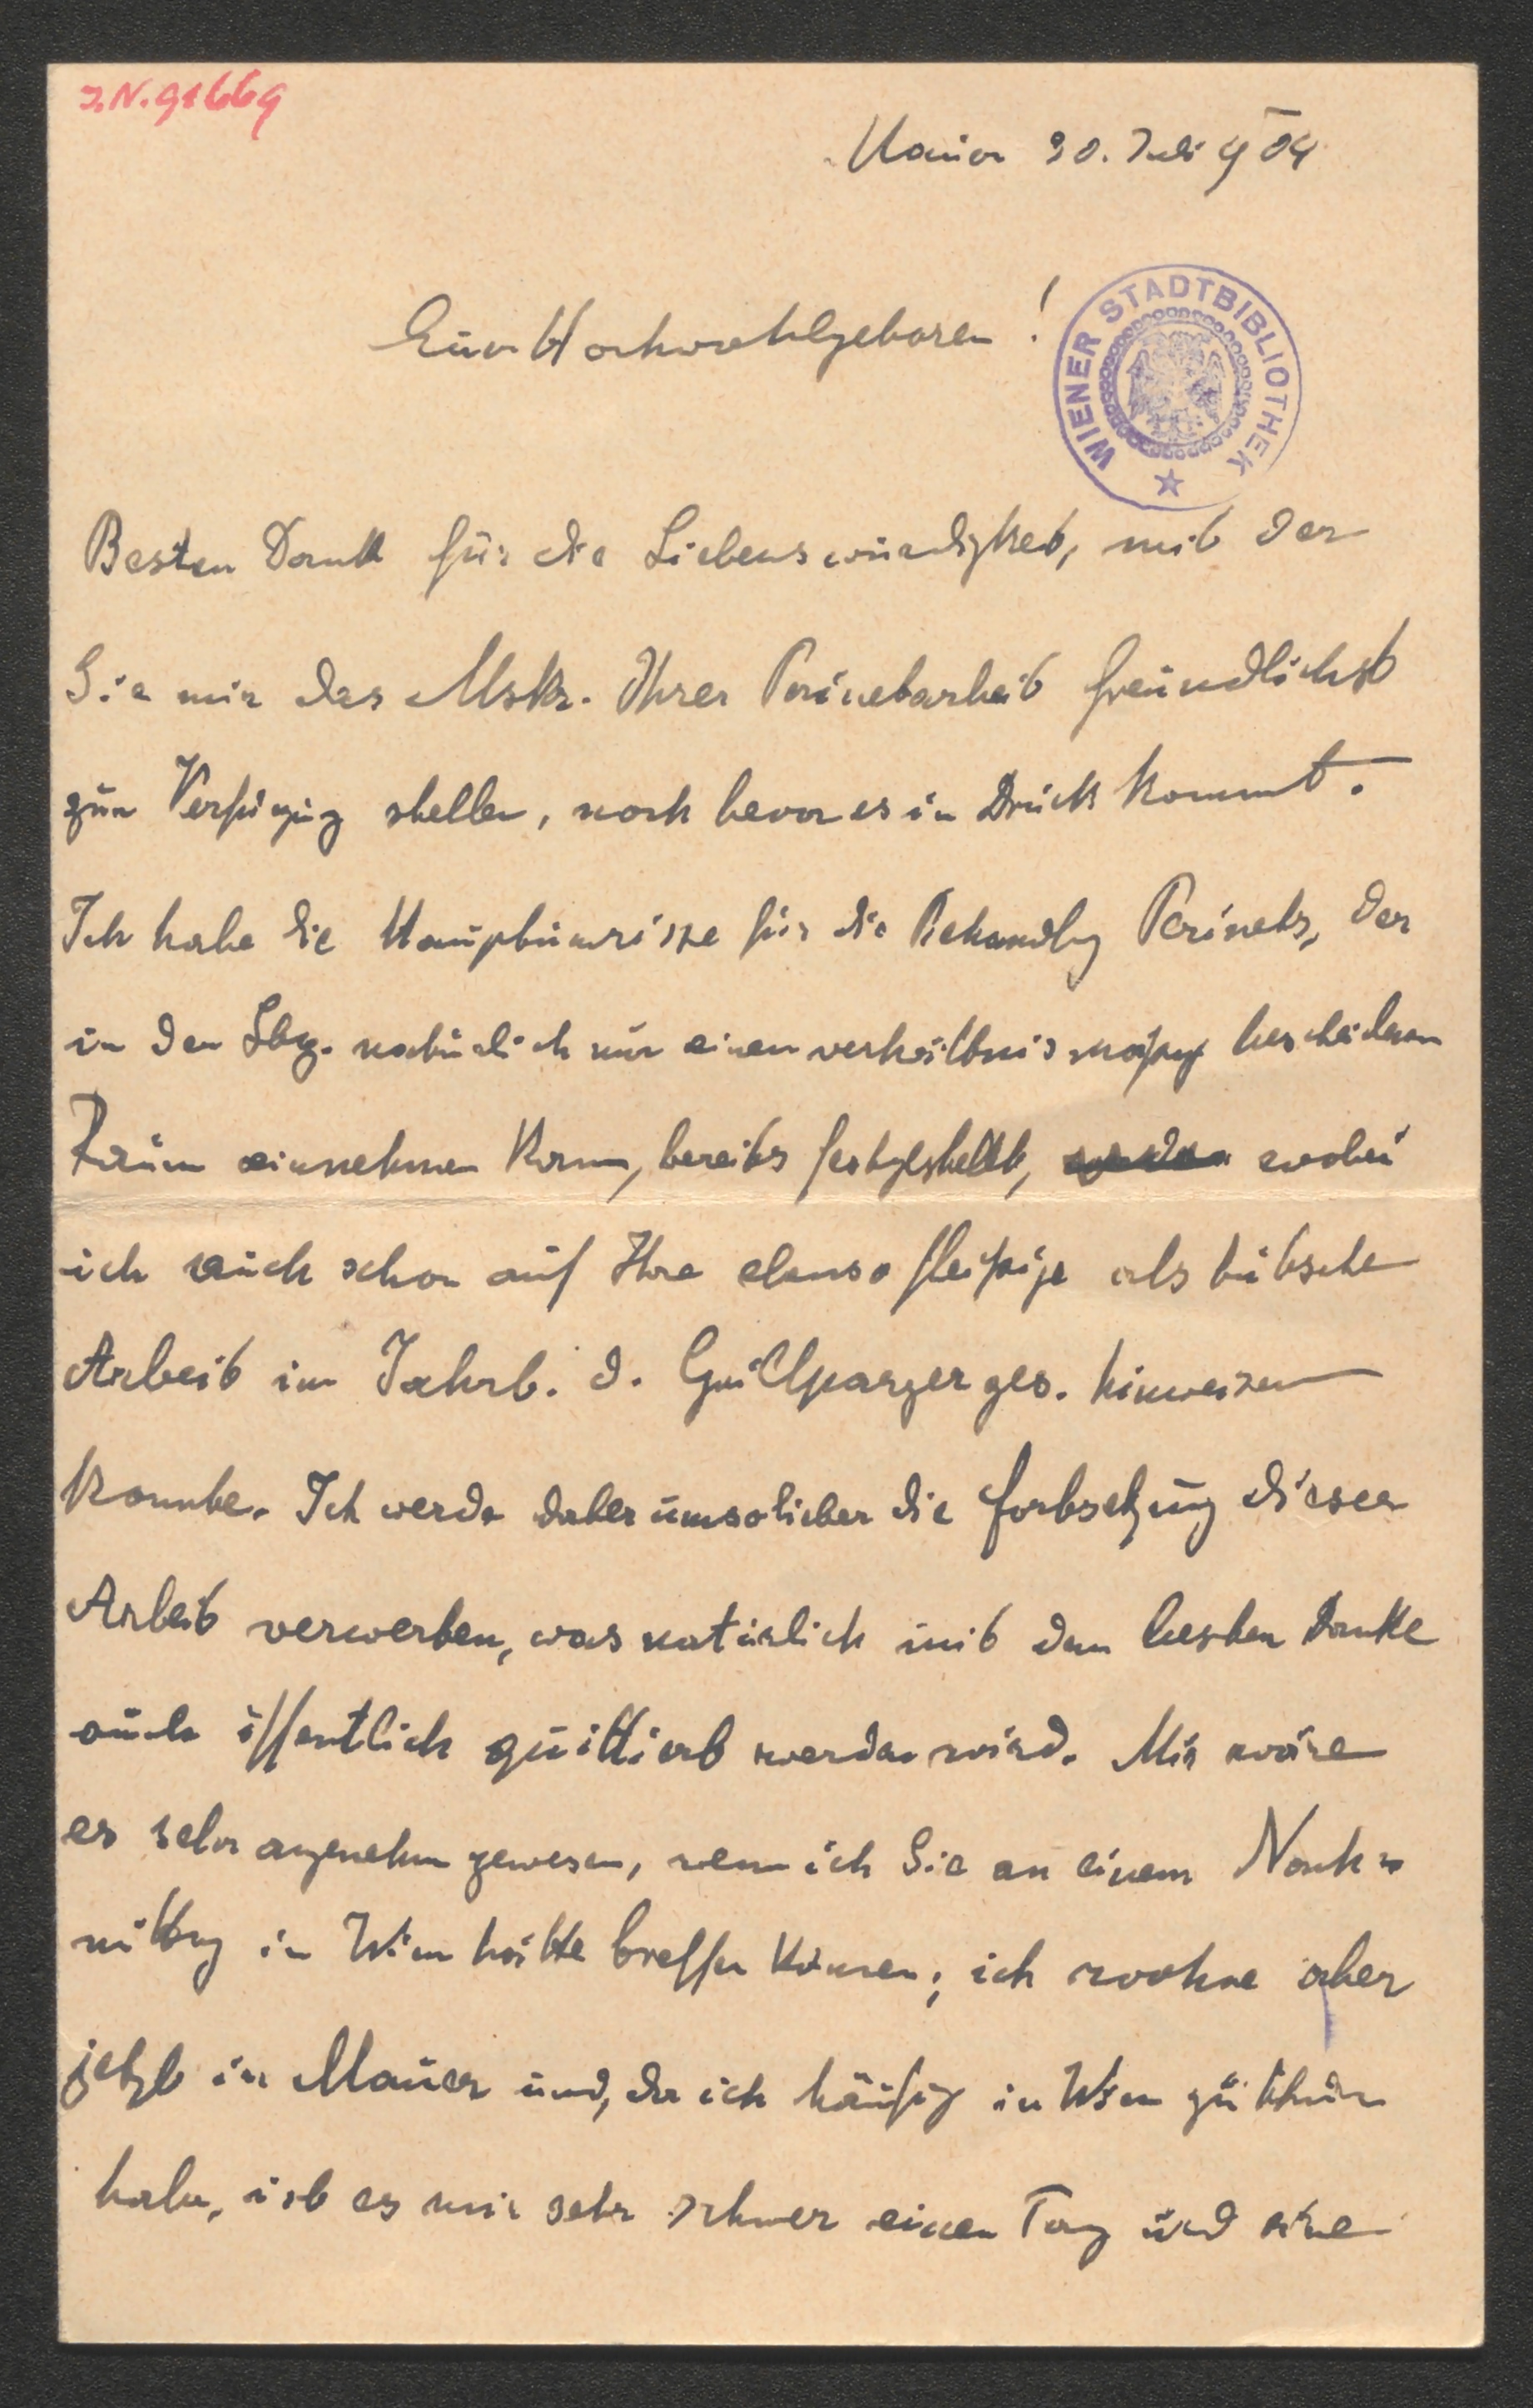 I.N. 91669
Mauer 30. Juli 904
Euer Hochwohlgeboren!
WIENER STADTBIBLIOTHEK
Besten Dank für die Liebenswürdigkeit, mit der
Sie mir das Mskr. Ihrer Perinetarbeit freundlichst
zur Verfügung stellen, noch bevor es in Druck kommt.
Ich habe die Hauptumrisse für die Behandlg Perinets, der
in den natürlich nur einen verhältnismäßig bescheidenen
Raum einnehmen kann, bereits festgestellt, wobei
ich auch schon auf Ihre ebenso fleißige als hübsche
Arbeit im Jahrb. d. Grillparzerges. hinweisen
konnte. Ich werde daher umso lieber die Fortsetzung dieser
Arbeit verwerten, was natürlich mit dem besten Danke
auch öffentlich quittiert werden wird. Mir wäre
es sehr angenehm gewesen, wenn ich Sie an einem Nach-
mittag in Wien hätte treffen können; ich wohne aber
jetzt in Mauer und, da ich häufig in Wien zu thun
habe, ist es mir sehr schwer einen Tag und eine